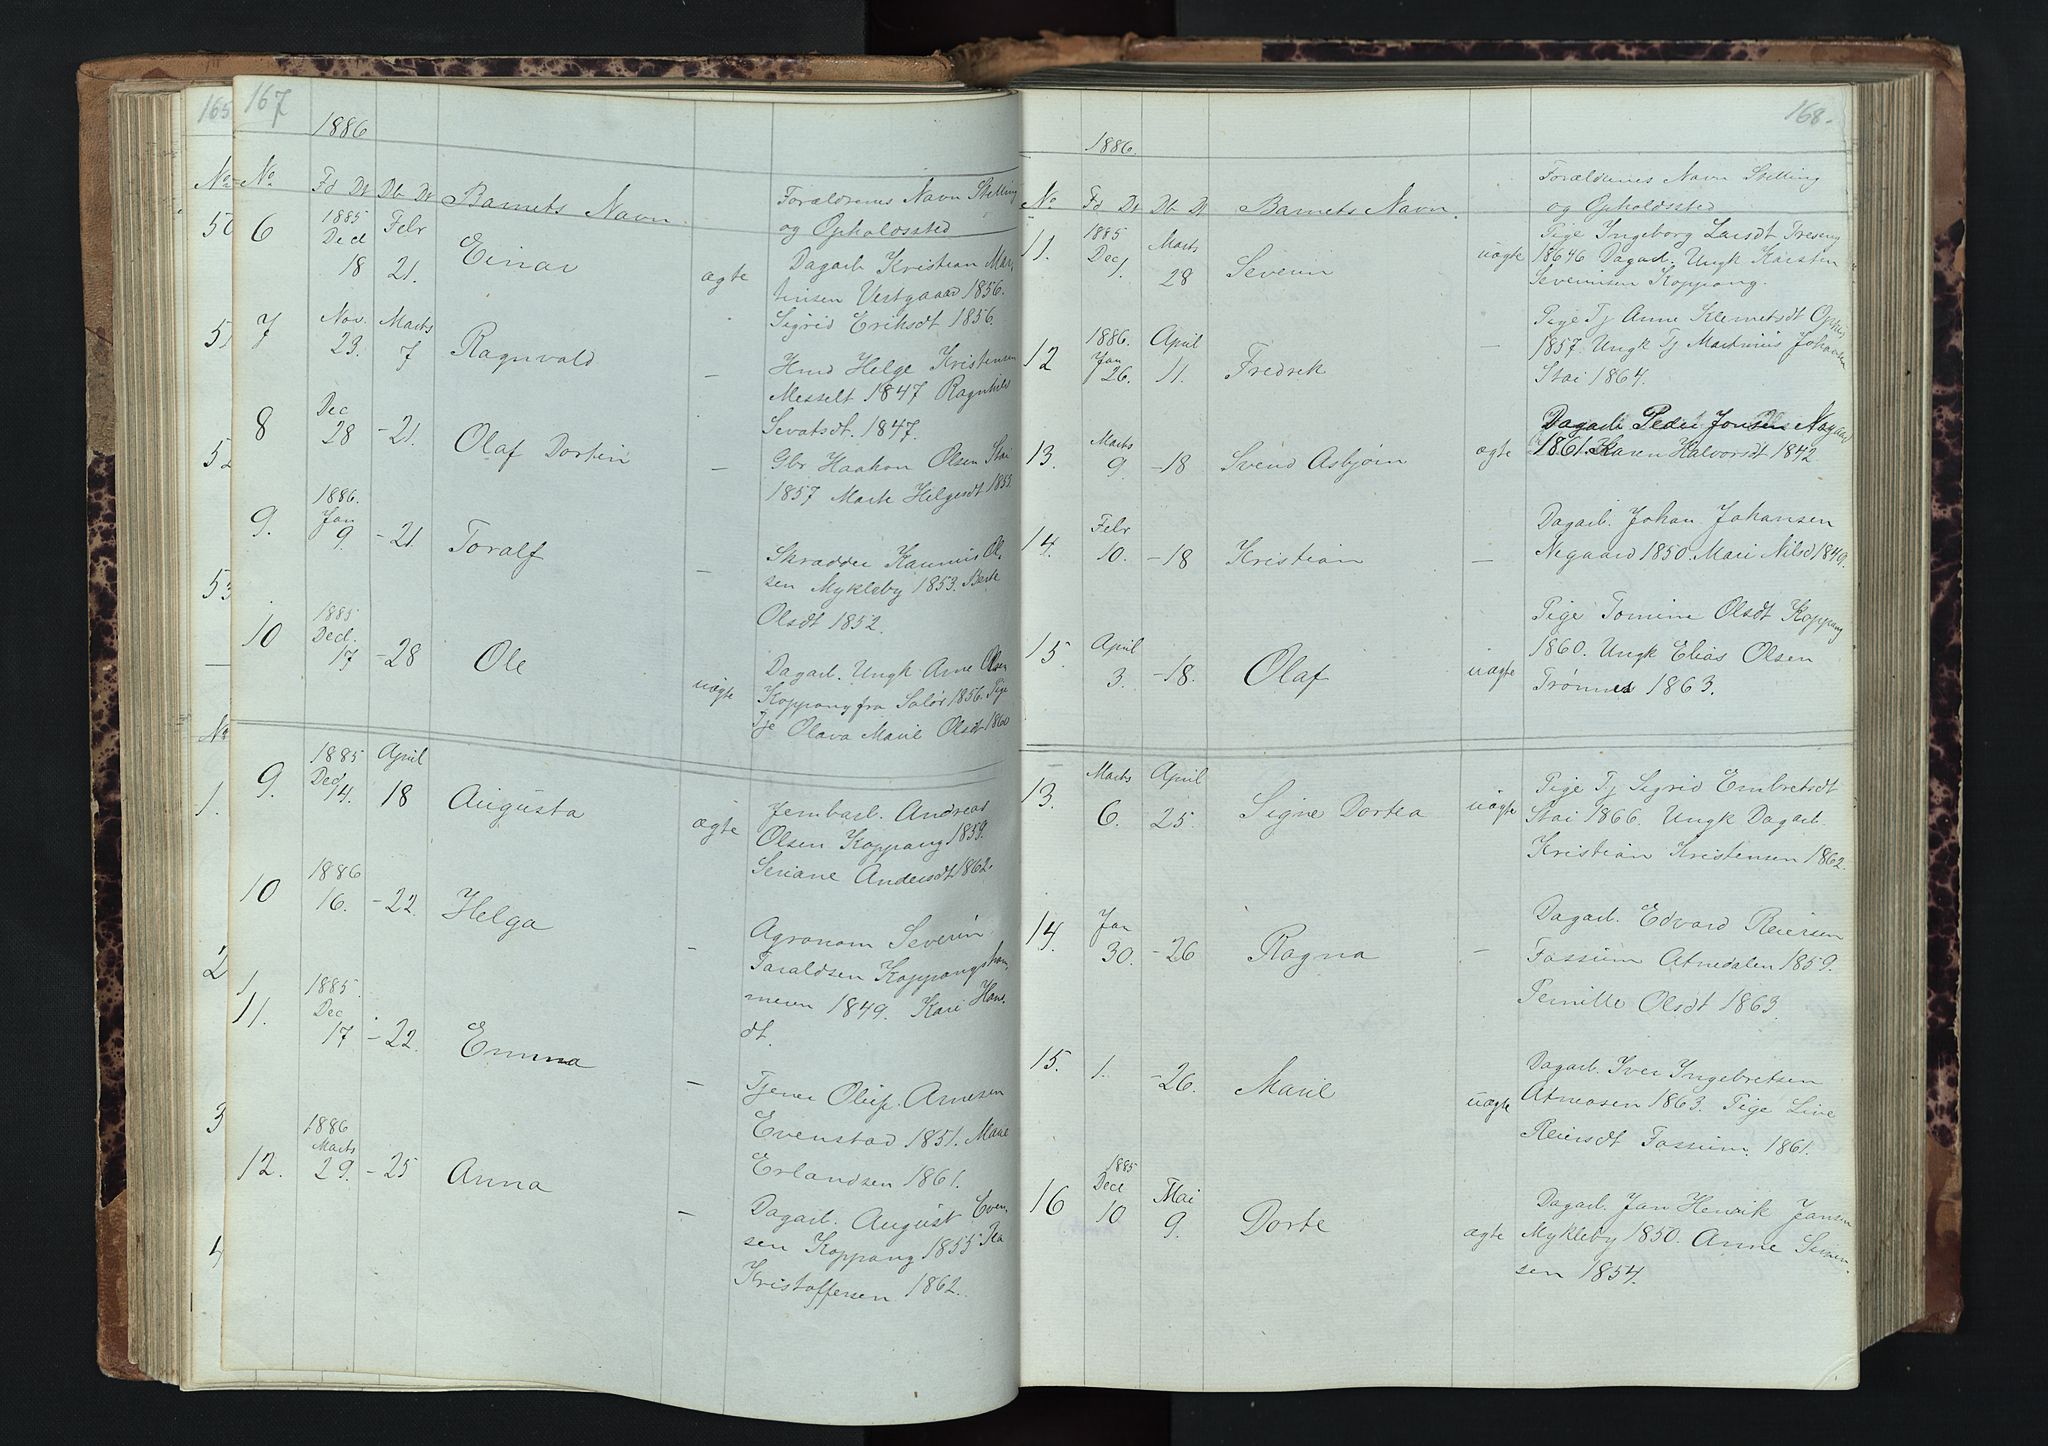 165
No
50
51
52
53
No
1.
2
3
4
167
1886
No Fd Dt Db Dt Barnets Navn Forældrenes Navn Stilling
og Opholdssted
6 1885 Decl 18 Febr 21. Einar ægte Dagarb Kristian Mar-
tinsen Vestgaard 1856.
Sigrid Eriksdt 1856.
7 Nov. 23. Marts 7 Ragnvald – Hmd Helge Kristensen
Messelt 1847 Ragnhild
Sevatsdt. 1847.
8 Dec 28 -21. Olaf Dortin – Gbr Haakon Olsen Stai
1857 Marte Helgesdt 1855.
9. 1886. Jan 9. -21. Toralf – Skrædder Ol-
sen Mykleby 1853. Berte
Olsdt 1852.
10 1885 Decl. 17 -28 Ole uægte Dagarb. Ungk Arne Olsen
Koppang fra Solør 1856. Pige
Tje Olava Marie Olsdt 1860
9. 1885 Decl 14. April 18 Augusta ægte Jernbarb. Andreas
Olsen Koppang 1859.
Seriane Andersdt 1862.
10 1886 16. -22. Helga – Agronom Severin
Taraldsen Koppangskam-
meien 1849. Kari Hans-
dt.
11. 1885. Dec 17 -22. Emma – Tjener Oluf Arnesen
Evenstad 1851. Marie
Erlandsen 1861.
12. 1886 Marts 29. -25 Anna – Dagarb. August Even-
sen Koppang 1855
Kristoffersen 1862.
168.
1886.
No Fd Dt Db Dt Barnets Navn. Forældrenes Navn Stilling
og Opholdssted
11. 1885 Dec 1. Marts 28 Severin uægte Pige Ingeborg Larsdt
Dagarb. Ungk Karsten
Severinsen Koppang.
12 1886. Jan 26. April 11. Fredrik – Pige Tj Anne Klemetsdt
1857. Ungk Tj Martinius Johansen
Stai 1864.
13. Marts 9. -18 Svend Asbjørn ægte Dagarb Peder Jonsen Nagaard
1861. Karen Halvorsdt 1842
14. Febr 10. -18 Kristian – Dagarb. Johan Johansen
Negaard 1850. Mari Nilsd 1849.
15. April 3. -18. Olaf uægte Pige Tomine Olsdt Koppang
1860. Ungk Elias Olsen
Trønnes 1863.
13. Marts 6. April 25. Signe Dortea uægte Pige Tj Sigrid Embretsdt
Stai 1866. Ungk Dagarb.
Kristian Kristensen 1862.
14. Jan 30. -26 Ragna – Dagarb. Edvard Reiersen
Fossum Atnedalen 1859.
Pernille Olsdt 1863.
15. 1. -26. Marie uægte Dagarb. Iver Ingebretsen
Atneosen 1863. Pige Live
Reiersdt Fossum. 1861.
16 1885 Decl 10 Mai 9. Dorte ægte Dagarb. Jan Henrik Jansen
Mykleby 1850. Anne Simen-
sen 1854.